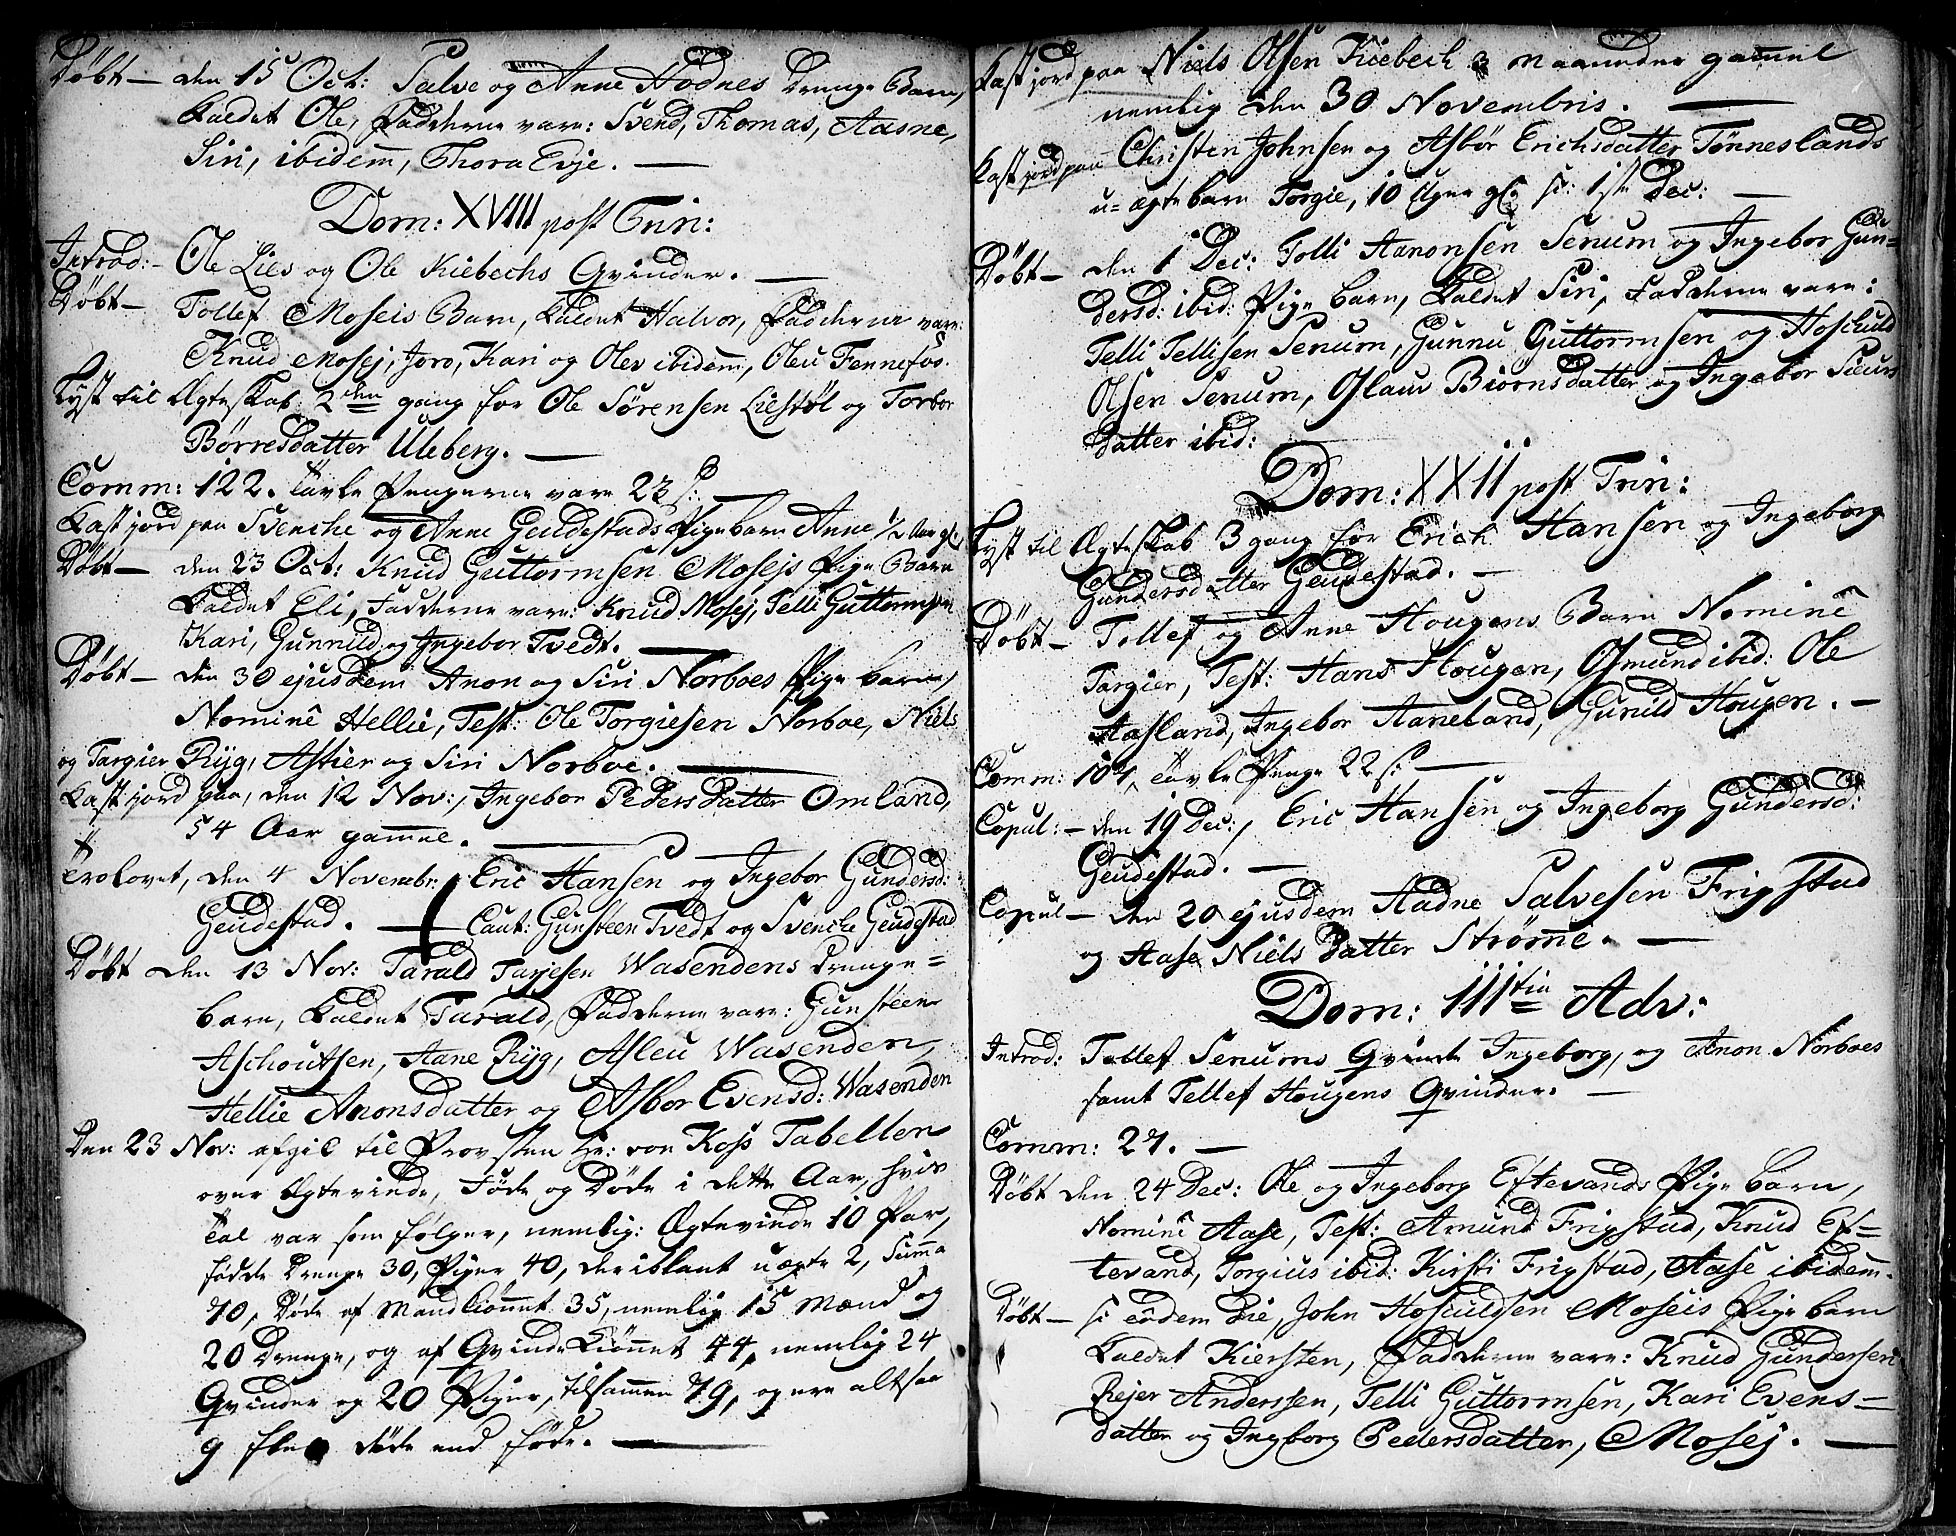 Döbt — den 15 Oct: Salve og Anne Hodnes Drenge Barn,
kaldet Ole, Fadderne vare: Svend, Thomas, Aasne,
Siri, ibidem, Thora Evje. —
Dom: XVIII post Trin:
Introd: — Ole Lies og Ole Kiebechs Qvinder. —
Döbt — Tollef Moseis Barn, kaldet Halvor, Fadderne vare:
Knud Mosej, Joro, Kari og Olev ibidem, Oleu Fennefos.
Lyst til Ægteskab 2den gang for Ole Sörensen Liestøl og Torbor
Börresdatter Uleberg. —
Comm: 122. Tavle Pengerne vare 23 ß: —
Kast jord paa Svenche og Anne Geudestads Pigebarn Anne 1/2 Aar gl:
Döbt — den 23 Oct: Knud Guttormsen Mosejs Pige Barn
kaldet Eli, Fadderne vare: Knud Mosej, Telli Guttormsen
Kari, Gunnild og Ingebor Tvedt. —
Döbt — den 30 ejusdem Anon og Siri Norboes Pige barn,
Nominê Hellie, Test: Ole Torgiesen Norboe, Niels
og Targier Ryg, Astier og Siri Norboe. —
Kast jord paa, den 12 Nov:, Ingebor Pedersdatter Omland,
54 Aar gamel. —
Trolovet, den 4 Novembr: Eric Hansen og Ingebor Gundersd:
Geudestad. — Caut: Gunsteen Tvedt og Svenche Geudestad
Döbt den 13 Nov: Tarald Tarjesen Wasendens Drenge=
barn, kaldet Tarald, Fadderne vare: Gunsteen
Aschoutsen, Aane Ryg, Asleu Wasenden,
Hellie Anonsdatter og Asbor Evensd: Wasenden
Den 23 Nov: afgik til Provsten Hr: von Koss Tabellen
over Ægteviede, Föde og Döde i dette Aar, hvis
Tal var som fölger, nemlig: Ægteviede 10 Par,
födde Drenge 30, Piger 40, deriblant uægte 2, Summa
70, Döde af Mandkiönnet 35, nemlig 15 Mænd og
20 Drenge, og af Qvindekiönnet 44, nemlig 24
Qvinder og 20 Piger, tilsammen 79, og ere altsaa
9 flere döde end föde. —
Kast jord paa Niels Olsen Kiebech 3 Maaneder gamel
nemlig den 30 Novembris. —
Kast jord paa Christen Johnsen og Asbör Erichsdatter Tønneslands
u=ægte barn Torgie, 10 Uger gl: d: 1ste Dec: —
Döbt — den 1 Dec: Tolli Aanonsen Senum og Ingebor Gun=
dersd: ibid: Pige barn, kaldet Siri, Fadderne vare:
Telli Tellisen Senum, Gunnu Guttormsen og Hoschuld
Olsen Senum, Oslaur Biørnsdatter og Ingebor Siurs
datter ibid:
Dom: XXII post Trin:
Lyst til Ægteskab 3 gang for Erich Hansen og Ingeborg
Gundersdatter Geudestad. —
Döbt — Tollef og Anne Hougens Barn Nominê
Targier, Test: Hans Hougen, Osmund ibid: Ole
Aasland, Ingebor Aaneland, Gunild Hougen. —
Comm: 104, Tavle Penge 22 ß: —
Copul: — den 19 Dec:, Eric Hansen og Ingeborg Gundersd:
Geudestad. —
Copul — den 20 ejusdem Aadne Salvesen Frigstad
og Aase Niels datter Strømme. —
Dom: IIItia Adv:
Introd: Tollef Senums Qvinde Ingeborg, og Anon Norboes
samt Tellef Hougens Qvinder. —
Comm: 27. —
Döbt den 24 Dec: Ole og Ingeborg Eftevands Pige barn,
Nominê Aase, Test: Amund Frigstad, Knud Ef=
tevand, Torgius ibid: Kirsti Frigstad, Aase ibidem.
Döbt — d: eôdem die, John Hosculdsen Moseis Pige barn
kaldet Kiersten, Fadderne vare: Knud Gundersen
Rejer Anderssen, Telli Guttormsen, Kari Evens=
datter og Ingborg Pedersdatter, Mosej. —